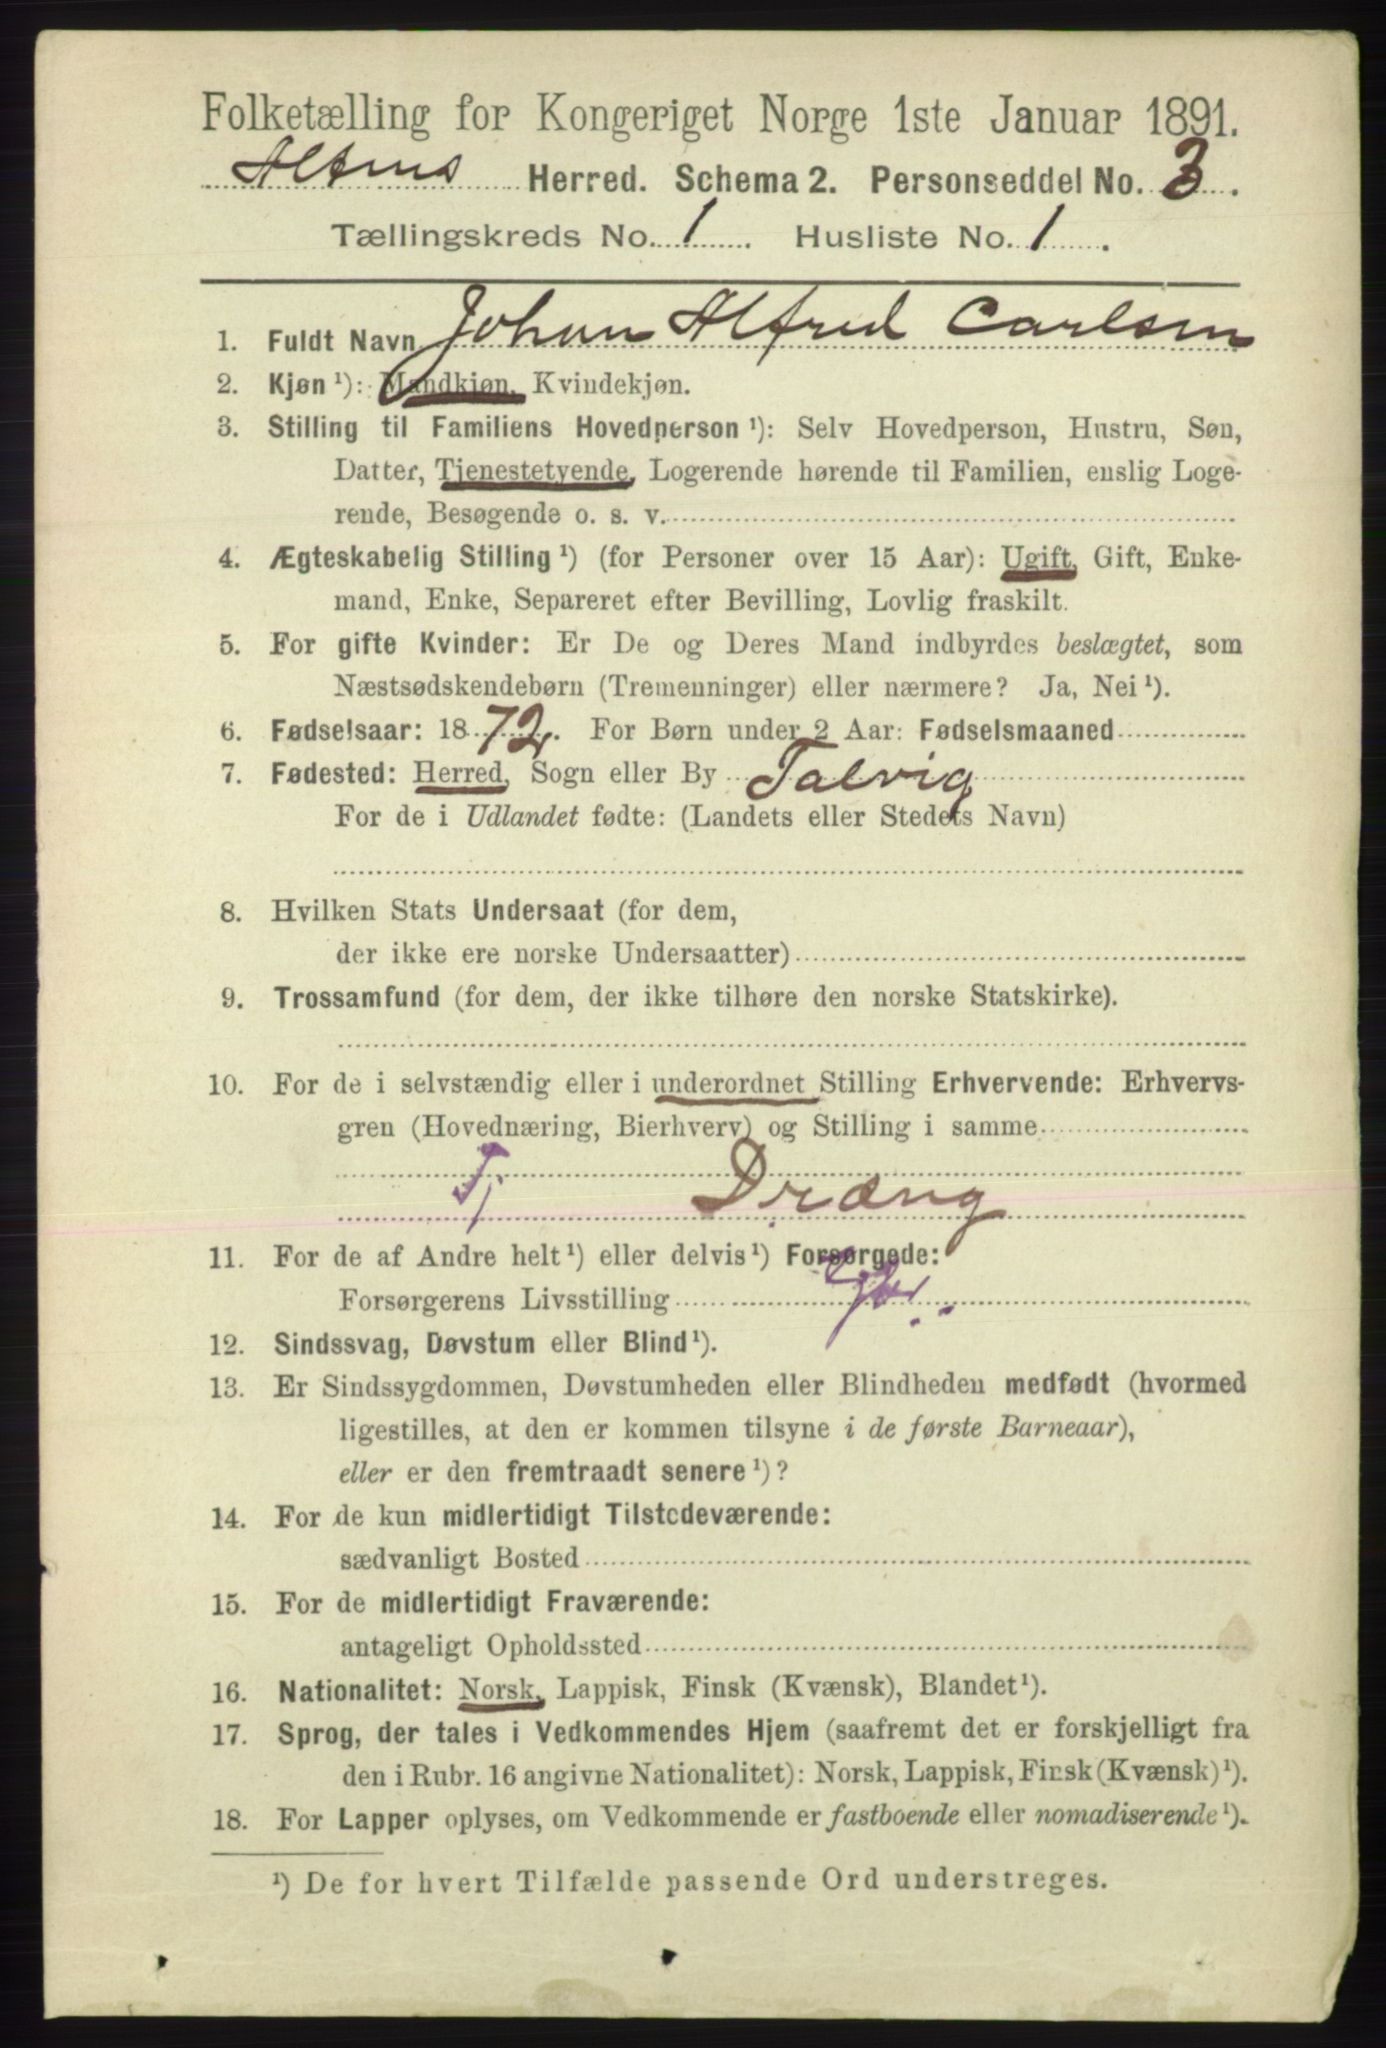 Folketælling for Kongeriget Norge 1ste Januar 1891.
Altens Herred. Schema 2. Personseddel No. 3.
Tællingskreds No. 1. Husliste No. 1.
1. Fuldt Navn Johan Alfred Carlsen
2. Kjøn ¹): Mandkjøn, Kvindekjøn.
3. Stilling til Familiens Hovedperson ¹): Selv Hovedperson, Hustru, Søn,
Datter, Tjenestetyende, Logerende hørende til Familien, enslig Loge-
rende, Besøgende o. s. v.
4. Ægteskabelig Stilling ¹) (for Personer over 15 Aar): Ugift, Gift, Enke-
mand, Enke, Separeret efter Bevilling, Lovlig fraskilt.
5. For gifte Kvinder: Er De og Deres Mand indbyrdes beslægtet, som
Næstsødskendebørn (Tremenninger) eller nærmere? Ja, Nei ¹).
6. Fødselsaar: 1872. For Børn under 2 Aar: Fødselsmaaned
7. Fødested: Herred, Sogn eller By Talvig
For de i Udlandet fødte: (Landets eller Stedets Navn)
8. Hvilken Stats Undersaat (for dem,
der ikke ere norske Undersaatter)
9. Trossamfund (for dem, der ikke tilhøre den norske Statskirke).
10. For de i selvstændig eller i underordnet Stilling Erhvervende: Erhvervs-
gren (Hovednæring, Bierhverv) og Stilling i samme
Tj. Dræng
11. For de af Andre helt ¹) eller delvis ¹) Forsørgede:
Forsørgerens Livsstilling
12. Sindssvag, Døvstum eller Blind ¹).
13. Er Sindssygdommen, Døvstumheden eller Blindheden medfødt (hvormed
ligestilles, at den er kommen tilsyne i de første Barneaar),
eller er den fremtraadt senere ¹)?
14. For de kun midlertidigt Tilstedeværende:
sædvanligt Bosted
15. For de midlertidigt Fraværende:
antageligt Opholdssted
16. Nationalitet: Norsk, Lappisk, Finsk (Kvænsk), Blandet ¹).
17. Sprog, der tales i Vedkommendes Hjem (saafremt det er forskjelligt fra
den i Rubr. 16 angivne Nationalitet): Norsk, Lappisk, Finsk (Kvænsk) ¹).
18. For Lapper oplyses, om Vedkommende er fastboende eller nomadiserende ¹).
¹) De for hvert Tilfælde passende Ord understreges.